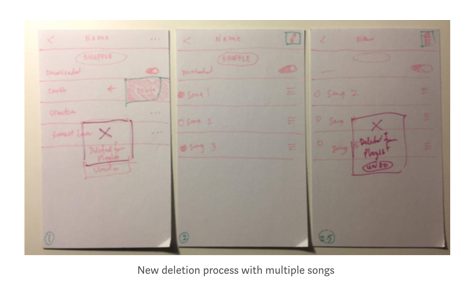 < NAME ...
SHUFFLE
Downloaded
Delete
Deleted from
Playlist
Undo
1
< NAME
SHUFFLE
Downloaded
Song 1
Song 2
Song 3
2
<
Song 2
Song
Song
Deleted from
Playlist
UNDO
2.5
New deletion process with multiple songs